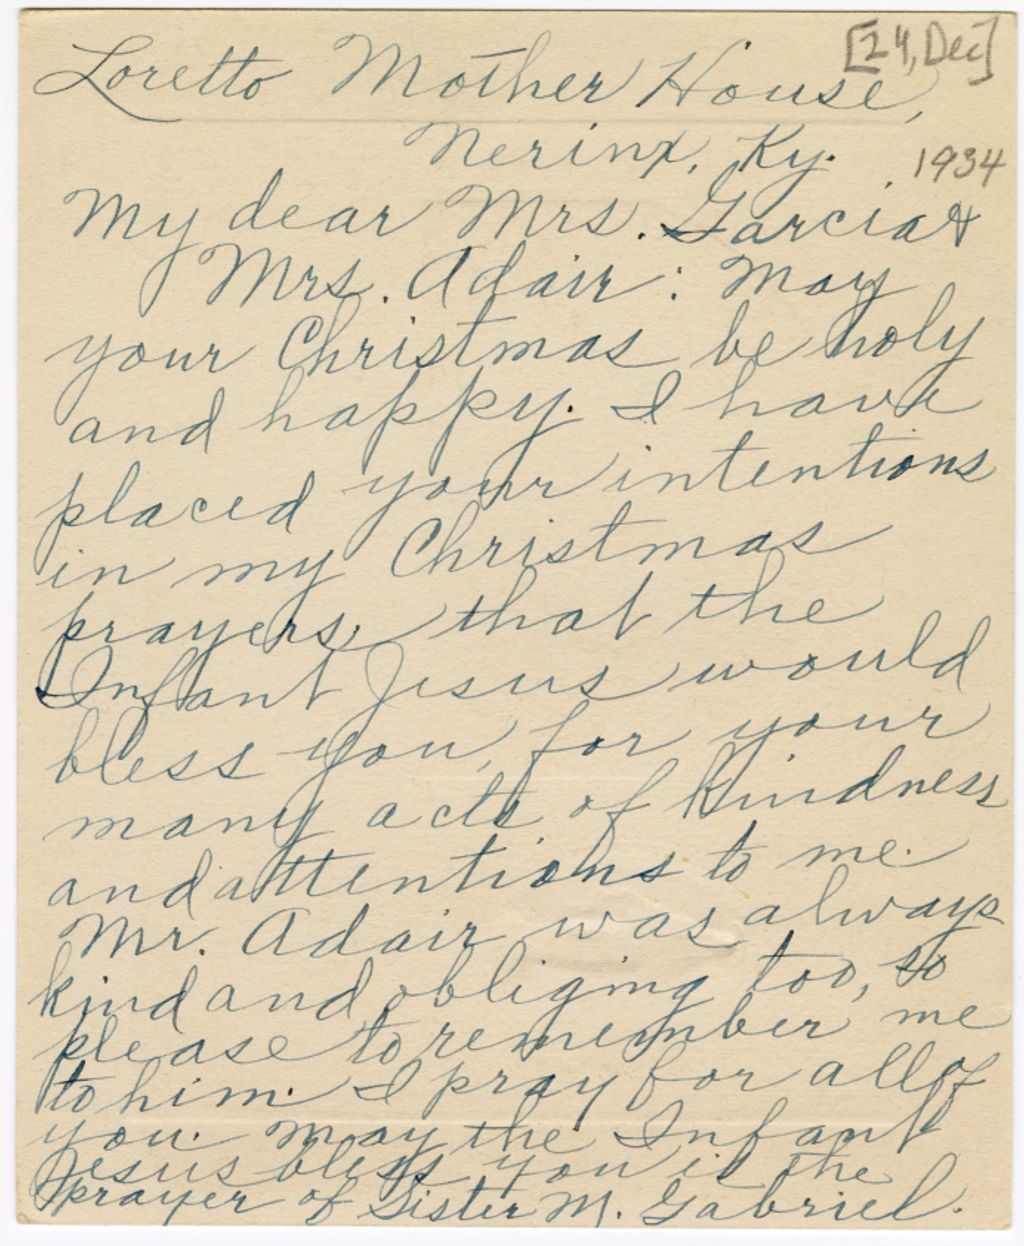 [24, Dec]
Loretto Mother House,
Nerinx, Ky. 1934
My dear Mrs. Garcia &
Mrs. Adair: May
your Christmas be holy
and happy. I have
placed your intentions
in my Christmas
prayers, that the
Infant Jesus would
bless you, for your
many acts of kindness
and attentions to me.
Mr. Adair was always
kind and obliging too, so
please to remember me
to him. I pray for all of
you. May the Infant
Jesus bless you is the
prayer of Sister M. Gabriel.